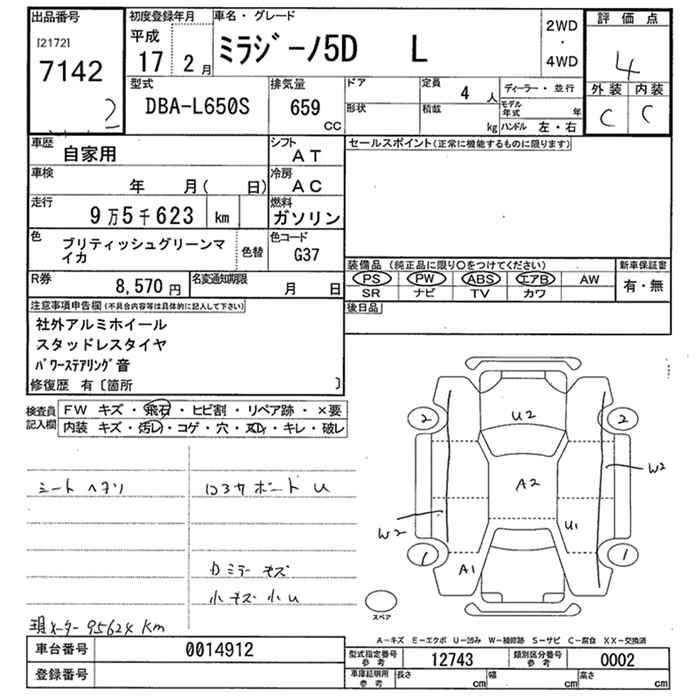 出品番号
[2172]
7142
初度登録年月
平成
17 2 月
車名・グレード
ミラジーノ5D L
2WD
・
4WD
評価点
4
外装 内装
C C
型式
DBA-L650S
排気量
659
CC
ドア
形状
定員
4 人
積載
kg
ディーラー・並行
モデル年式 年
ハンドル 左・右
車歴
自家用
シフト
AT
車検
年 月( 日)
冷房
AC
走行
9万5千623 km
燃料
ガソリン
色
ブリティッシュグリーンマイカ
色替
色コード
G37
R券
8,570 円
名変通知期限
月 日
セールスポイント(正常に機能するものに限ります)
装備品 (純正品に限り○をつけてください)
PS PW ABS エアB AW
SR ナビ TV カワ
新車保証書
有・無
後日品
注意事項申告欄(不具合内容等は具体的に記入して下さい)
社外アルミホイール
スタッドレスタイヤ
パワーステアリング音
修復歴 有〔箇所 〕
検査員記入欄
FW キズ・飛石・ヒビ割・リペア跡・×要
内装 キズ・汚レ・コゲ・穴・スレ・キレ・破レ
シートヘタリ
ロアサポート U
Dミラーキズ
小キズ小U
現メーター95624Km
2 2
U2
A2
W2
W2
U1
A1
1 1
スペア
A-キズ E-エクボ U-凹み W-補修跡 S-サビ C-腐食 XX-交換済
車台番号
0014912
登録番号
型式指定番号
参考
12743
類別区分番号
参考
0002
車庫証明用
参考
長さ cm
幅 cm
高さ cm